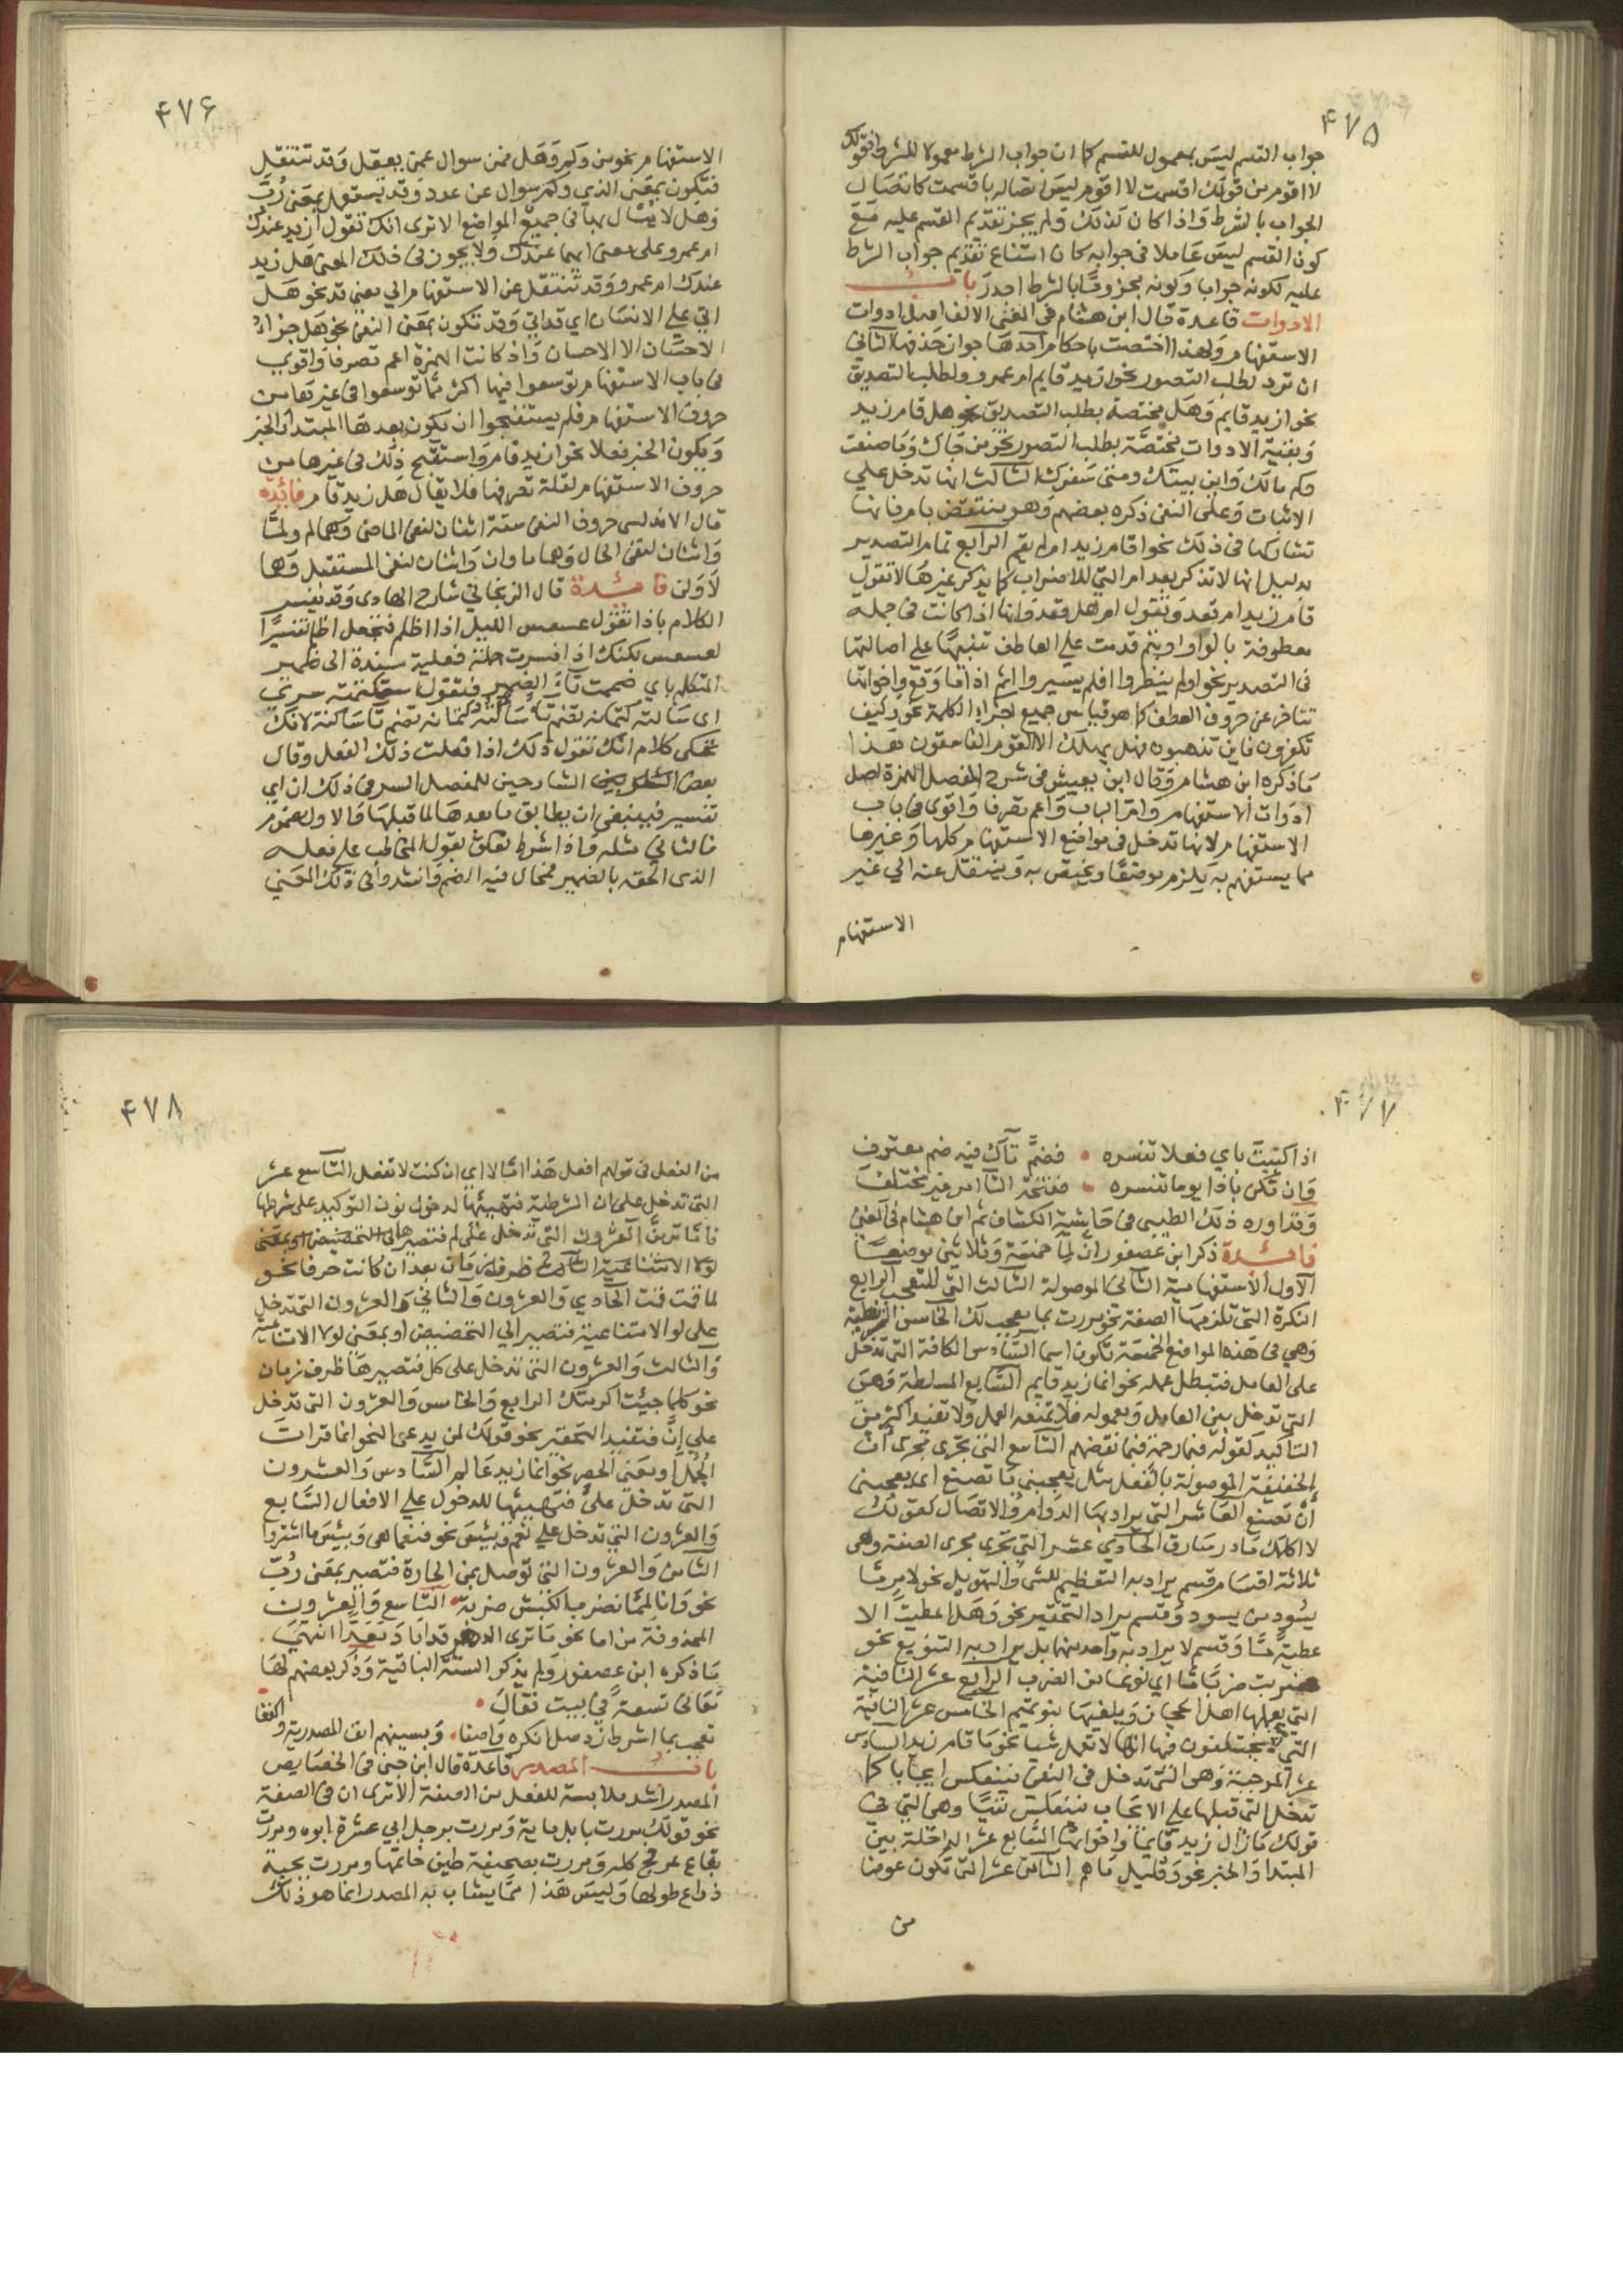 ۴۷۵
جواب القسم ليس بمعمول للقسم كما ان جواب الشرط معمولا للشرط فقولك
لا اقوم من قولك اقسمت لا اقوم ليس اتصاله باقسمت كاتصال
الجواب بالشرط واذا كان كذلك ولم يجز تقديم القسم عليه مع
كون القسم ليس عاملا في جوابه كان امتناع تقديم جواب الشرط
عليه لكونه جوابا وكونه مجزوما بالشرط اجدر باب
الادوات قاعدة قال ابن هشام في المغنى الالف اصل ادوات
الاستفهام ولهذا اختصت باحكام احدها جواز حذفها الثاني
ان ترد لطلب التصور نحو ازيد قايم ام عمرو ولطلب التصديق
نحو ازيد قايم وهل مختصة بطلب التصديق نحو هل قام زيد
وبقية الادوات مختصة بطلب التصور نحو من جاك وما صنعت
وكم مالك واين بيتك ومتى سفرك الثالث انها تدخل على
الاثبات وعلى النفي ذكره بعضهم وهو منتقض بام فانها
تشاركها في ذلك نحو اقام زيد ام لم يقم الرابع تمام التصدير
بدليل انها لا تذكر بعد ام التي للاضراب كما يذكر غيرها لا تقول
قام زيد ام قعد وتقول ام هل قعد وانها اذا كانت في جملة
معطوفة بالواو او بثم قدمت على العاطف تنبيها على اصالتها
في التصدير نحو اولم ينظروا افلم يسيروا اثم اذا ما وقع واخواتها
تتاخر عن حروف العطف كما هو قياس جميع اجزاء الكلمة نحو وكيف
تكفرون فاين تذهبون فهل يهلك الا القوم الفاسقون هذا
ما ذكره ابن هشام وقال ابن يعيش في شرح المفصل الهمزة اصل
ادوات الاستفهام وام الباب واعم تصرفا واقوى في باب
الاستفهام لانها تدخل في مواضع الاستفهام كلها وغيرها
مما يستفهم به يلزم موضعا ويختص به وينتقل عنه الى غير
الاستفهام
۴۷۶
الاستفهام نحو من وكم وهل فمن سوال عمن يعقل وقد تنتقل
فتكون بمعنى الذي وكم سوال عن عدد وقد يستعمل بمعنى رب
وهل لا يسال بها في جميع المواضع الا ترى انك تقول ازيد عندك
ام عمرو على معنى ايهما عندك ولا يجوز في ذلك المعنى هل زيد
عندك ام عمرو وقد تنتقل عن الاستفهام الى معنى قد نحو هل
اتى على الانسان اي قد اتى وقد تكون بمعنى النفي نحو هل جزاء
الاحسان الا الاحسان واذ كانت الهمزة اعم تصرفا واقوى
في باب الاستفهام توسعوا فيها اكثر مما توسعوا في غيرها من
حروف الاستفهام فلم يستقبحوا ان يكون بعدها المبتدا والخبر
ويكون الخبر فعلا نحو ازيد قام واستقبح ذلك في غيرها من
حروف الاستفهام لقلة تصرفها فلا يقال هل زيد قام فائدة
قال الاندلسى حروف النفي ستة اثنان لنفي الماضى وهما لم ولما
واثنان لنفي الحال وهما ما وان واثنان لنفي المستقبل وهما
لا ولن فائدة قال الزنجاني شارح الهادى وقد يفسر
الكلام باذا تقول عسعس الليل اذا اظلم فتجعل اظلم تفسيرا
لعسعس لكنك اذا فسرت جملة فعلية مسندة الى ضمير
المتكلم باي ضممت تاء الضمير فتقول استكتمته سري
اى سالته كتمانه بضم تا سالته لانك
تحكى كلام انك تقول ذلك اذا فعلت ذلك الفعل وقال
بعض الشارحين للمفصل السر في ذلك ان اي
تفسير فينبغي ان يطابق ما بعدها لما قبلها والاول مضموم
فالثاني مثله واذا شرط تعلق بقول المخاطب على فعله
الذى الحقه بالضمير فمحال فيه الضم وانشدوا في ذلك المعنى
۴۷۷
اذا كنيت باي فعلا تفسره • فضم تاك فيه ضم معترف
وان تكن باذا يوما تفسره • ففتحة التا امر غير مختلف
وقد اورد ذلك الطيبى في حاشية الكشاف ثم ابن هشام في المغني
فائدة ذكر ابن عصفور ان لما خمسة وثلاثين موضعا
الاول الاستفهامية الثاني الموصولة الثالث التي للتعجب الرابع
النكرة التي تلزمها الصفة نحو مررت بما معجب لك الخامس الشرطية
وهي في هذه المواضع الخمسة تكون اسما السادس الكافة التي تدخل
على العامل فتبطل عمله نحو انما زيد قايم السابع المسلطة وهى
التي تدخل بين العامل ومعموله فلا تمنعه العمل ولا تفيد اكثر من
التاكيد كقوله فبما رحمة فبما نقضهم التاسع التي تجرى مجرى ان
الخفيفة الموصولة بالفعل مثل يعجبني ما تصنع اى يعجبني
ان تصنع العاشر التي يراد بها الدوام والاتصال كقولك
لا اكلمك ما در شارق الحادي عشر التي تجرى مجرى الصفة وهى
ثلاثة اقسام قسم يراد به التعظيم للشى والتهويل نحو لامر ما
يسود من يسود وقسم يراد التحقير نحو وهل اعطيت الا
عطية ما وقسم لا يراد به واحد منهما بل يراد به التنويع نحو
ضربت ضربا ما اي نوعا من الضرب الرابع عشر النافية
التي يعملها اهل الحجاز ويلغيها بنو تميم الخامس عشر النافية
التي لا يختلفون فيها انها لا تعمل شيا نحو ما قام زيد السادس
عشر الموجبة وهى التي تدخل في النفي فينعكس ايجابا كما
تدخل التي قبلها على الايجاب فينعكس نفيا وهى التي في
قولك ما زال زيد قايما واخواتها السابع عشر الداخلة بين
المبتدا والخبر نحو وقليل ما هم الثامن عشر التي تكون عوضا
من
۴۷۸
من الفعل في قولهم افعل هذا امالا اي ان كنت لا تفعل التاسع عشر
التي تدخل على ان الشرطية فتهيئها لدخول نون التوكيد على شرطها
فاما ترين العشرون التي تدخل على لم فتصير
ظرف زمان بعد ان كانت حرفا نحو
لما قمت قمت الحادي والعشرون والثاني والعشرون التي تدخل
على لو الامتناعية فتصير الى التحضيض او بمعنى لولا الامتناعية
والثالث والعشرون التي تدخل على كل فتصيرها ظرف زمان
نحو كلما جيئت اكرمتك الرابع والخامس والعشرون التي تدخل
على ان فتفيد التحقير نحو قولك لمن يدعى النحو انما قرات
الجمل او معنى الحصر نحو انما زيد عالم السادس والعشرون
التي تدخل على فتهيئها للدخول على الافعال السابع
والعشرون التي تدخل على نعم وبيس نحو فنعما هى وبئس ما اشتروا
الثامن والعشرون التي توصل بمن الجارة فتصير بمعنى رب
نحو وانا لمما نضرب الكبش ضربة • التاسع والعشرون
المحذوفة من اما نحو ما ترى الدهر قد اباد انتهى
ما ذكره ابن عصفور ولم يذكر الستة الباقية وذكر بعضهم لها
معانى تسعة في بيت فقال •
تعجب بما اشرط زد صل انكره واصفا • وبسينهم انف المصدرية واكففا
باب المصدر قاعدة قال ابن جنى في الخصايص
المصدر اشد ملابسة للفعل من الصفة الا ترى ان في الصفة
نحو قولك مررت بابل ماية ومررت برجل ابي عشرة ابوه ومررت
بقاع عرفج كله ومررت بصحيفة طين خاتمها ومررت بحية
ذراع طولها وليس هذا مما يشاب به المصدر انما هو ذلك